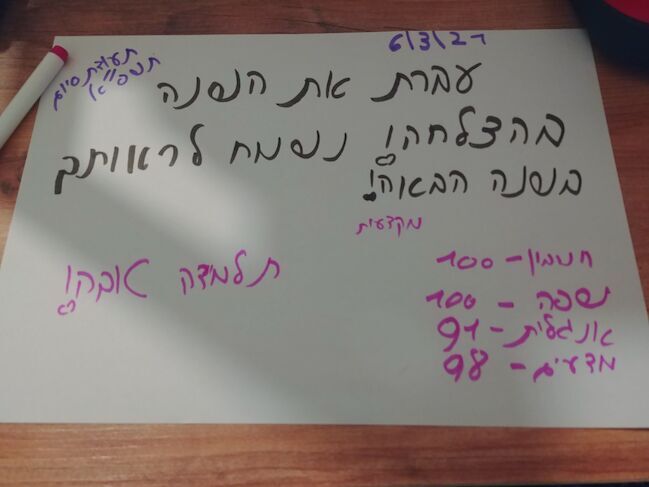 6/3/27
תעודת סיום
עברת את השנה
בהצלחה! נשמח לראותך
בשנה הבאה!
מקצועית
חשבון - 100
שפה - 100
אנגלית - 91
מדעים - 98
תלמידה טובה!